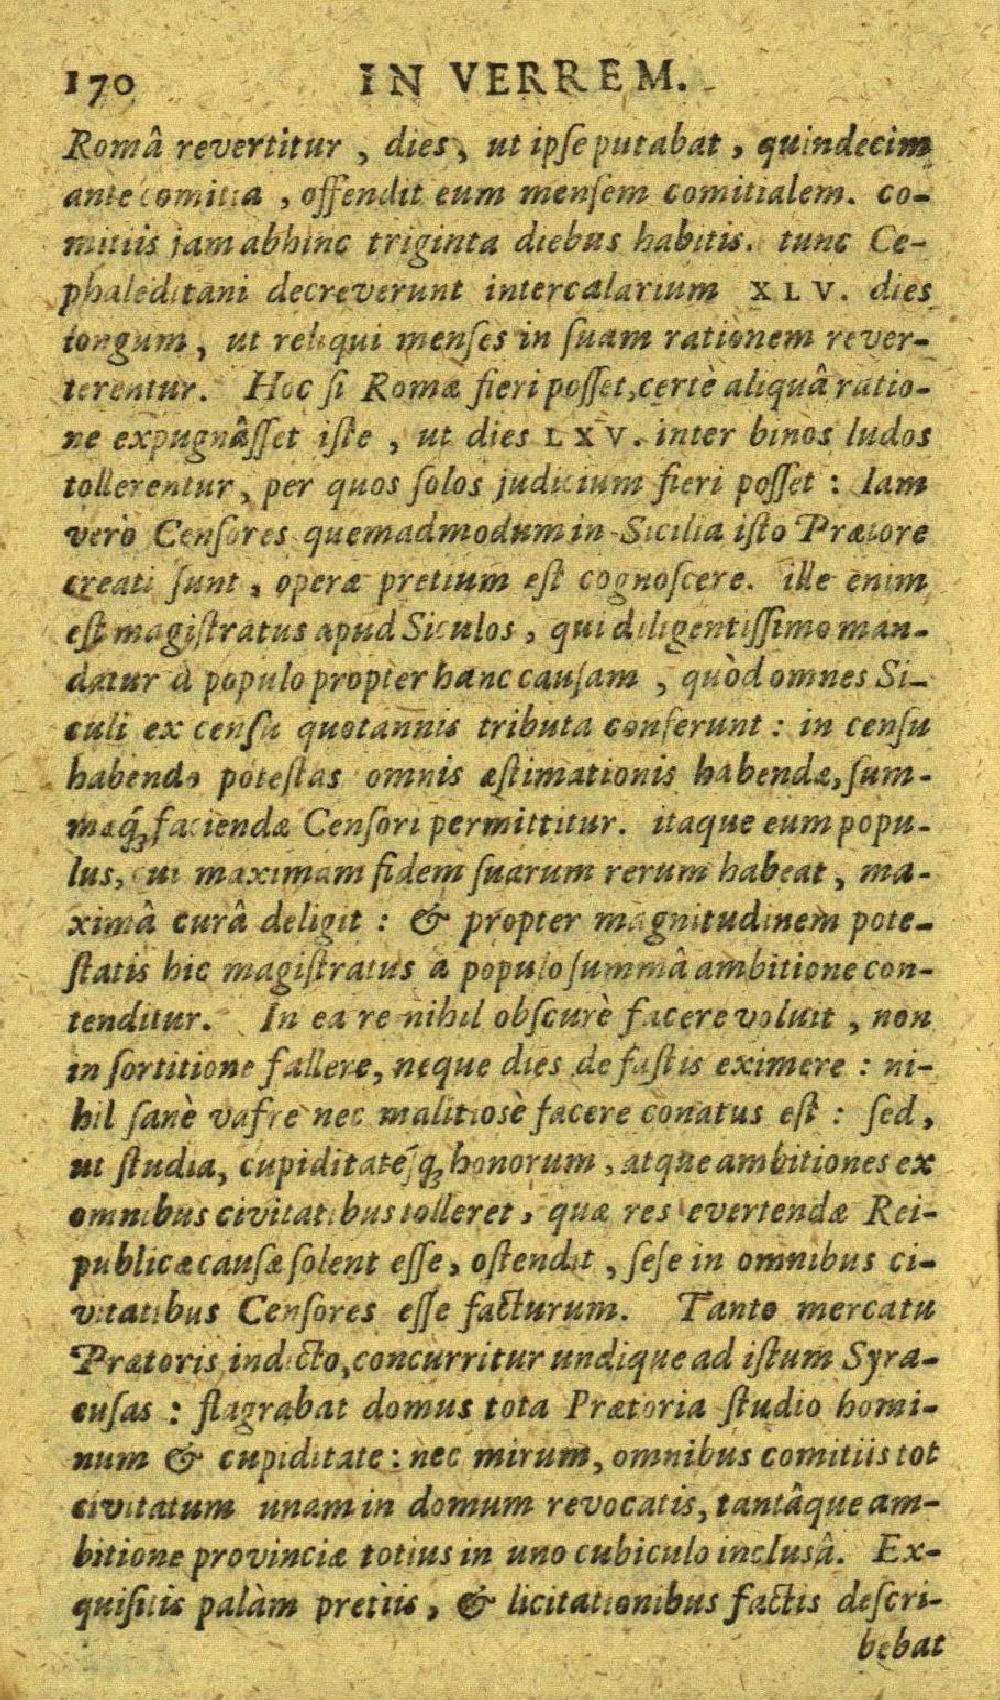 170 IN VERREM.
Româ revertitur, dies, ut ipse putabat, quindecim
ante comitia, offendit eum mensem comitialem. co-
mitiis jam abhinc triginta diebus habitis. tunc Ce-
phaleditani decreverunt intercalarium XLV. dies
longum, ut reliqui menses in suam rationem rever-
terentur. Hoc si Romæ fieri posset, certè aliquâ ratio-
ne expugnâsset iste, ut dies LXV. inter binos ludos
tollerentur, per quos solos judicium fieri posset: Iam
verò Censores quemadmodum in Sicilia isto Prætore
creati sunt, operæ pretium est cognoscere. ille enim
est magistratus apud Siculos, qui diligentissimo man-
datur à populo propter hanc causam, quòd omnes Si-
culi ex censu quotannis tributa conferunt: in censu
habendo potestas omnis æstimationis habendæ, sum-
mæq́; faciendæ Censori permittitur. itaque eum popu-
lus, cui maximam fidem suarum rerum habeat, ma-
ximâ curâ deligit: & propter magnitudinem pote-
statis hic magistratus a populo summâ ambitione con-
tenditur. In ea re nihil obscurè facere voluit, non
in sortitione fallere, neque dies de fastis eximere: ni-
hil sanè vafrè nec malitiosè facere conatus est: sed,
ut studia, cupiditatéq; honorum, atque ambitiones ex
omnibus civitatibus tolleret, quæ res evertendæ Rei-
publicæ causæ solent esse, ostendit, sese in omnibus ci-
vitatibus Censores esse facturum. Tanto mercatu
Prætoris indicto, concurritur undique ad istum Syra-
cusas: flagrabat domus tota Prætoria studio homi-
num & cupiditate: nec mirum, omnibus comitiis tot
civitatum unam in domum revocatis, tantâque am-
bitione provinciæ totius in uno cubiculo inclusâ. Ex-
quisitis palàm pretiis, & licitationibus factis descri-
bebat